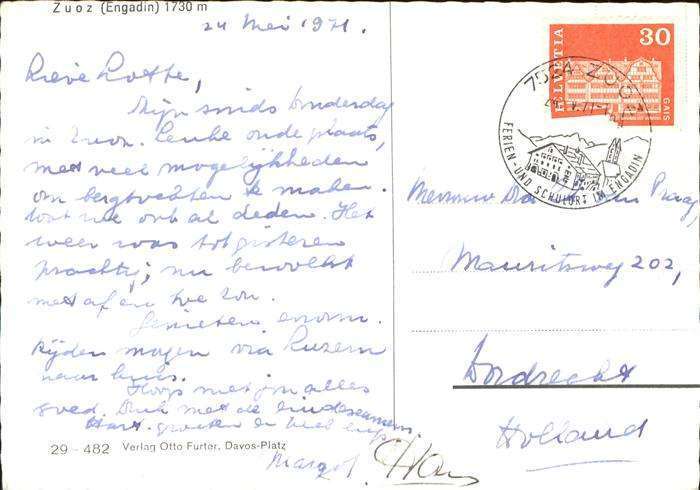 Zuoz (Engadin) 1730 m
24 Mei 1971.
Lieve Lotte,
Zijn sinds donderdag
in Zuoz. Leuke oude plaats,
met veel mogelijkheden
om bergtochten te maken.
wat we ook al deden. Het
weer was tot gisteren
prachtig; nu bewolkt
met af en toe zon.
Genieten enorm.
Rijden morgen via Luzern
naar huis.
Hoop met jou alles
goed. Druk met de eindexamens.
Hart. groeten en veel liefs
Margot Hans
29 - 482 Verlag Otto Furter, Davos-Platz
HELVETIA 30
GAIS
7524 ZUOZ
FERIEN- UND SCHULORT IM ENGADIN
Mevrouw Praag,
Mauritsweg 202,
Dordrecht
Holland